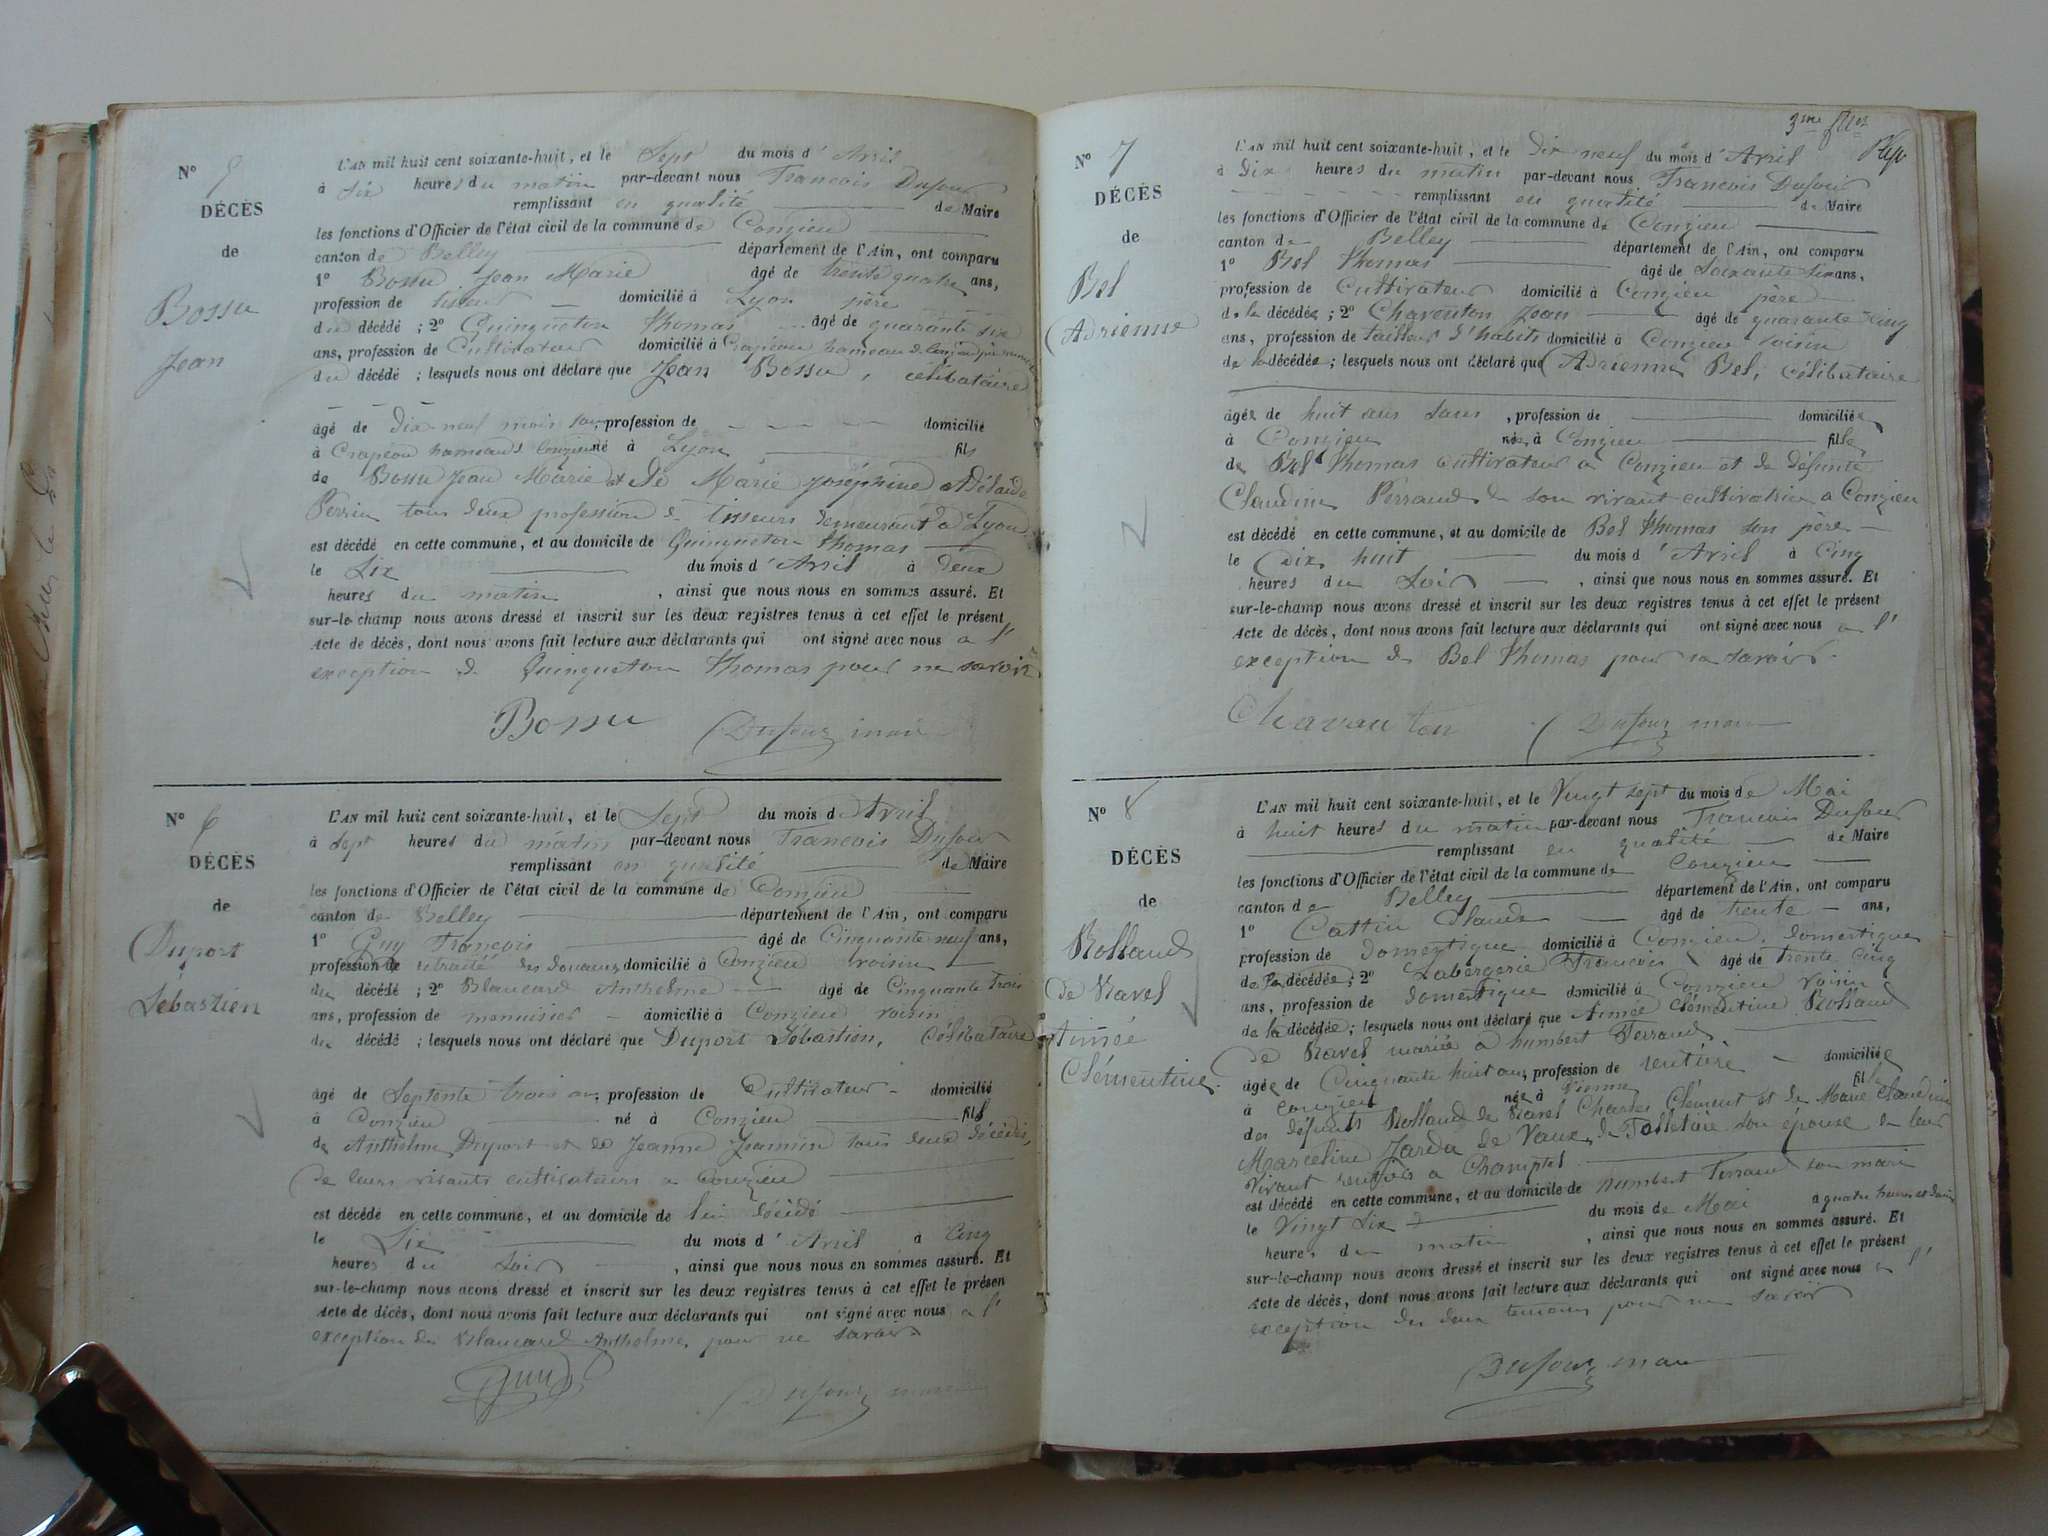 N° 5
DÉCÈS
de
Bossu
Jean
L'AN mil huit cent soixante-huit, et le Sept du mois d'Avril
à Six heures du matin par-devant nous François Dufour
remplissant en qualité de Maire
les fonctions d'Officier de l'état civil de la commune de Conzieu
canton de Belley département de l'Ain, ont comparu
1° Bossu Jean Marie âgé de trente quatre ans,
profession de tisseur domicilié à Lyon père
du décédé ; 2° Quinqueton Thomas âgé de quarante six
ans, profession de Cultivateur domicilié à Crapéou hameau de Conzieu
du décédé ; lesquels nous ont déclaré que Jean Bossu, célibataire
âgé de Dix neuf mois profession de domicilié
à Crapéou hameau de Conzieu né à Lyon fils
de Bossu Jean Marie et de Marie Joséphine Adélaïde
Perrin tous deux profession de tisseurs demeurant à Lyon
est décédé en cette commune, et au domicile de Quinqueton Thomas
le Six du mois d'Avril à Deux
heures du matin, ainsi que nous nous en sommes assuré. Et
sur-le-champ nous avons dressé et inscrit sur les deux registres tenus à cet effet le présent
Acte de décès, dont nous avons fait lecture aux déclarants qui ont signé avec nous a l'
exception de Quinqueton Thomas pour ne savoir
Bossu Dufour maire
N° 6
DÉCÈS
de
Duport
Sébastien
L'AN mil huit cent soixante-huit, et le Sept du mois d'Avril
à Sept heures du matin par-devant nous François Dufour
remplissant en qualité de Maire
les fonctions d'Officier de l'état civil de la commune de Conzieu
canton de Belley département de l'Ain, ont comparu
1° Guy François âgé de Cinquante neuf ans,
profession de retraité des douanes domicilié à Conzieu voisin
du décédé ; 2° Blancard Anthelme âgé de Cinquante trois
ans, profession de menuisier domicilié à Conzieu voisin
du décédé ; lesquels nous ont déclaré que Duport Sébastien, Célibataire
âgé de Septente trois ans, profession de Cultivateur domicilié
à Conzieu né à Conzieu fils
de Anthelme Duport et de Jeanne Jeannin tous deux décédés,
de leurs vivants cultivateurs a Conzieu
est décédé en cette commune, et au domicile de lui décédé
le Six du mois d'Avril à Cinq
heures du Soir, ainsi que nous nous en sommes assuré. Et
sur-le-champ nous avons dressé et inscrit sur les deux registres tenus à cet effet le présen
Acte de décès, dont nous avons fait lecture aux déclarants qui ont signé avec nous a l'
exception de Blancard Anthelme, pour ne savoir
Guy Dufour maire
3me
N° 7
DÉCÈS
de
Bel
Adrienne
L'AN mil huit cent soixante-huit, et le Dix neuf du mois d'Avril
à Dix heures du matin par-devant nous François Dufour
remplissant en qualité de Maire
les fonctions d'Officier de l'état civil de la commune de Conzieu
canton de Belley département de l'Ain, ont comparu
1° Bel Thomas âgé de Soixante six ans,
profession de Cultivateur domicilié à Conzieu père
de la décédée ; 2° Chavonton Jean âgé de quarante cinq
ans, profession de tailleur d'habits domicilié à Conzieu voisin
de la décédée ; lesquels nous ont déclaré que Adrienne Bel, Célibataire
âgée de huit ans, profession de domiciliée
à Conzieu née à Conzieu fille
de Bel Thomas cultivateur a Conzieu et de défunte
Claudine Perraud de son vivant cultivatrice a Conzieu
est décédé en cette commune, et au domicile de Bel Thomas son père
le Dix huit du mois d'Avril à Cinq
heures du Soir, ainsi que nous nous en sommes assuré. Et
sur-le-champ nous avons dressé et inscrit sur les deux registres tenus à cet effet le présent
Acte de décès, dont nous avons fait lecture aux déclarants qui ont signé avec nous a l'
exception de Bel Thomas pour ne savoir.
Chavanton Dufour maire
N° 8
DÉCÈS
de
Rolland
de Ravel
Aimée
Clémentine
L'AN mil huit cent soixante-huit, et le Vingt sept du mois de Mai
à huit heures du matin par-devant nous François Dufour
remplissant en qualité de Maire
les fonctions d'Officier de l'état civil de la commune de Conzieu
canton de Belley département de l'Ain, ont comparu
1° Cattin Claude âgé de trente ans,
profession de Domestique domicilié à Conzieu, domestique
de la décédée ; 2° Labergerie François âgé de trente cinq
ans, profession de domestique domicilié à Conzieu voisin
de la décédée ; lesquels nous ont déclaré que Aimée Clémentine Rolland
de Ravel mariée a humbert Ferrand
âgée de Cinquante huit ans, profession de rentière domiciliée
à Conzieu née à Vienne fille
des défunts Rolland de Ravel Charles Clément et de Marie Claudine
Marceline de Vaux de son épouse de leur
Vivant rentiers a
est décédé en cette commune, et au domicile de humbert Ferrand son mari
le Vingt six du mois de Mai à quatre heures et demie
heures du matin, ainsi que nous nous en sommes assuré. Et
sur-le-champ nous avons dressé et inscrit sur les deux registres tenus à cet effet le présent
Acte de décès, dont nous avons fait lecture aux déclarants qui ont signé avec nous a l'
exception des deux temoins pour ne savoir
Dufour maire